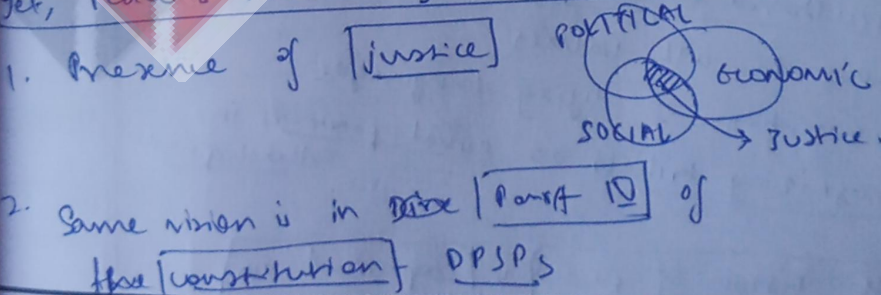 1. Presence of justice
POLITICAL
ECONOMIC
SOCIAL
Justice.
2. Same vision is in Part IV of
the constitution DPSPs